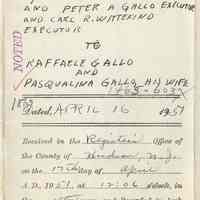 AND PETER A GALLO EXECUTOR
AND CARL R. WITTEKIND
EXECUTOR
TO
RAFFAELE GALLO
AND
PASQUALINA GALLO, HIS WIFE
NOTED
Dated, APRIL 16 1951
Received in the Register's Office of
the County of Hudson, N.J.
on the 17th day of April
A.D. 1951, at 12:06 o'clock, in